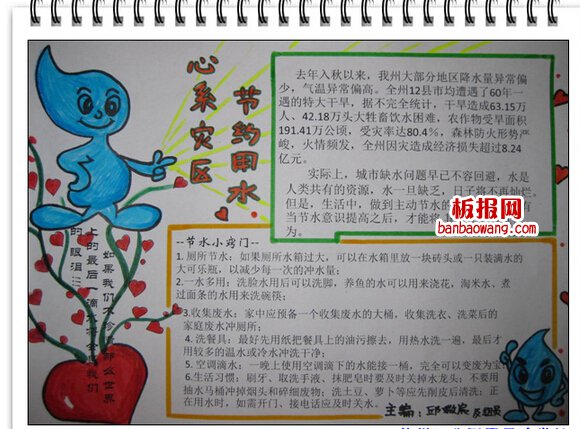 心系灾区
节约用水
去年入秋以来，我州大部分地区降水量异常偏
少，气温异常偏高。全州12县市均遭遇了60年一
遇的特大干旱，据不完全统计，干旱造成63.15万
人、42.18万头大牲畜饮水困难，农作物受旱面积
191.41万公顷，受灾率达80.4%，森林防火形势严
峻，火情频发，全州因灾造成经济损失超过8.24
亿元。
实际上，城市缺水问题早已不容回避，水是
人类共有的资源，水一旦缺乏，日子将不再灿烂。
但是，生活中，做到主动节水的
当节水意识提高之后，才能
为。
板报网
banbaowang.com
--节水小窍门--
1.厕所节水：如果厕所水箱过大，可以在水箱里放一块砖头或一只装满水的
大可乐瓶，以减少每一次的冲水量；
2.一水多用：洗脸水用后可以洗脚，养鱼的水可以用来浇花，淘米水、煮
过面条的水用来洗碗筷；
3.收集废水：家中应预备一个收集废水的大桶，收集洗衣、洗菜后的
家庭废水冲厕所；
4.洗餐具：最好先用纸把餐具上的油污擦去，用热水洗一遍，最后才
用较多的温水或冷水冲洗干净；
5.空调滴水：一晚上使用空调滴下的水能接一桶，完全可以变废为宝
6.生活习惯：刷牙、取洗手液、抹肥皂时要及时关掉水龙头；不要用
抽水马桶冲掉烟头和碎细废物；洗土豆、萝卜等应先削皮后清洗；正
在用水时，如需开门、接电话应及时关水。
如果我们不珍惜那么世界
上的最后一滴水将会是我们
的眼泪!!!
主编：邱